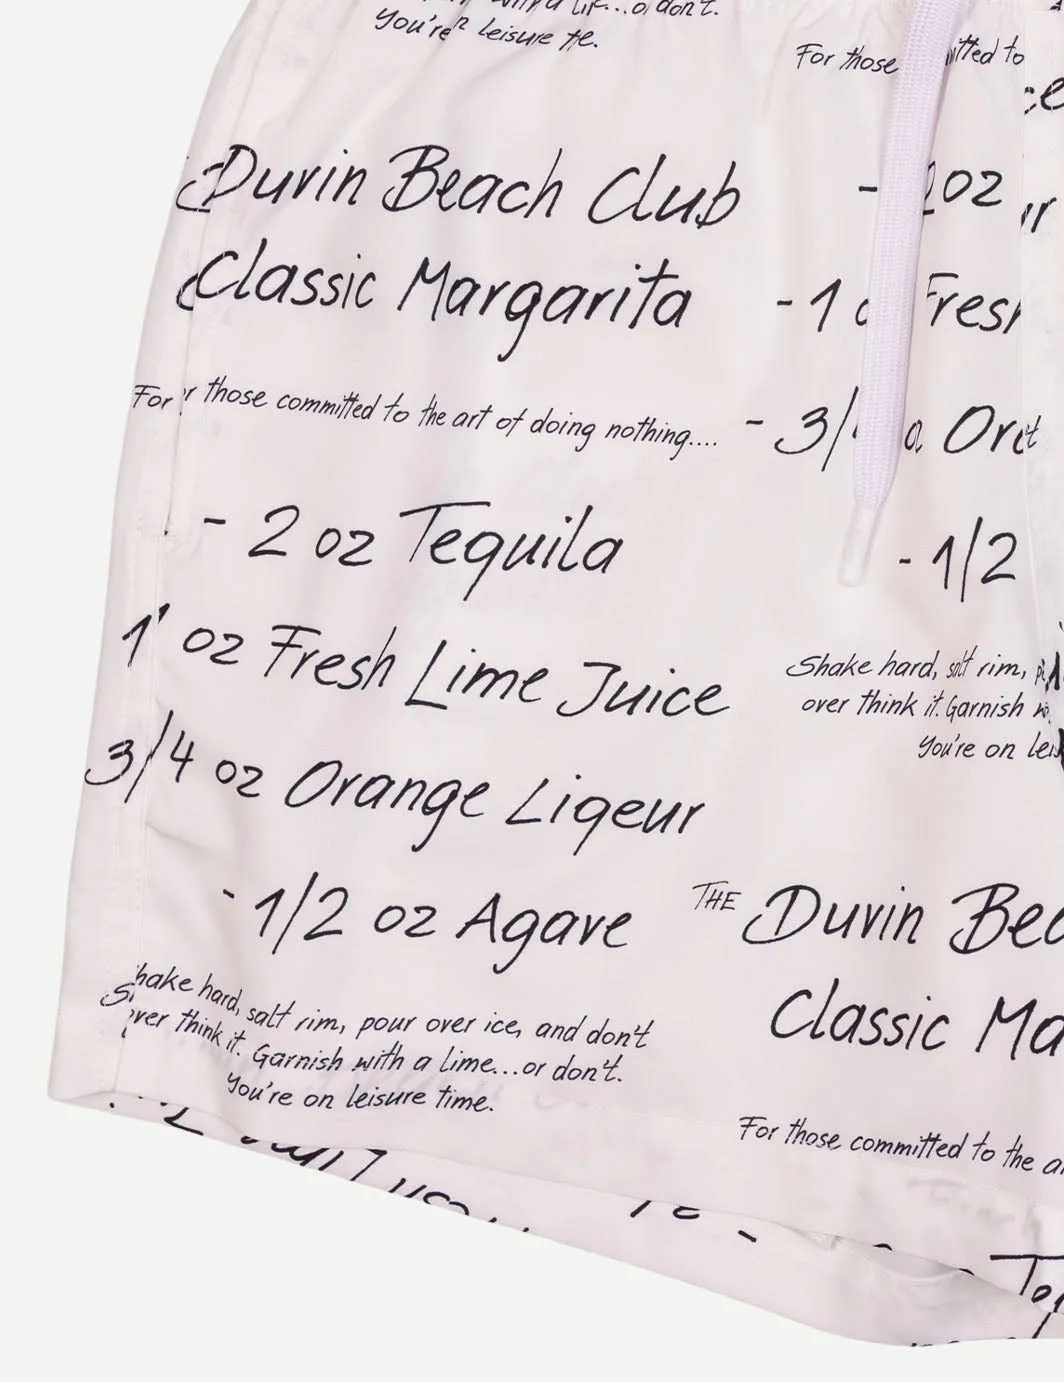 You're leisure
For those to
Durin Beach Club
Classic Margarita
For those committed to the art of doing nothing....
- 2 oz Tequila
1 oz Fresh Lime Juice
3/4 oz Orange Liqeur
- 1/2 oz Agave
Shake hard, salt rim, pour over ice, and don't
over think it. Garnish with a lime...or don't.
You're on leisure time.
- 2 oz
- 1
- 3/
- 1/2
Shake hard, salt rim,
over think it. Garnish
You're on
THE Durin
Classic
For those committed to the